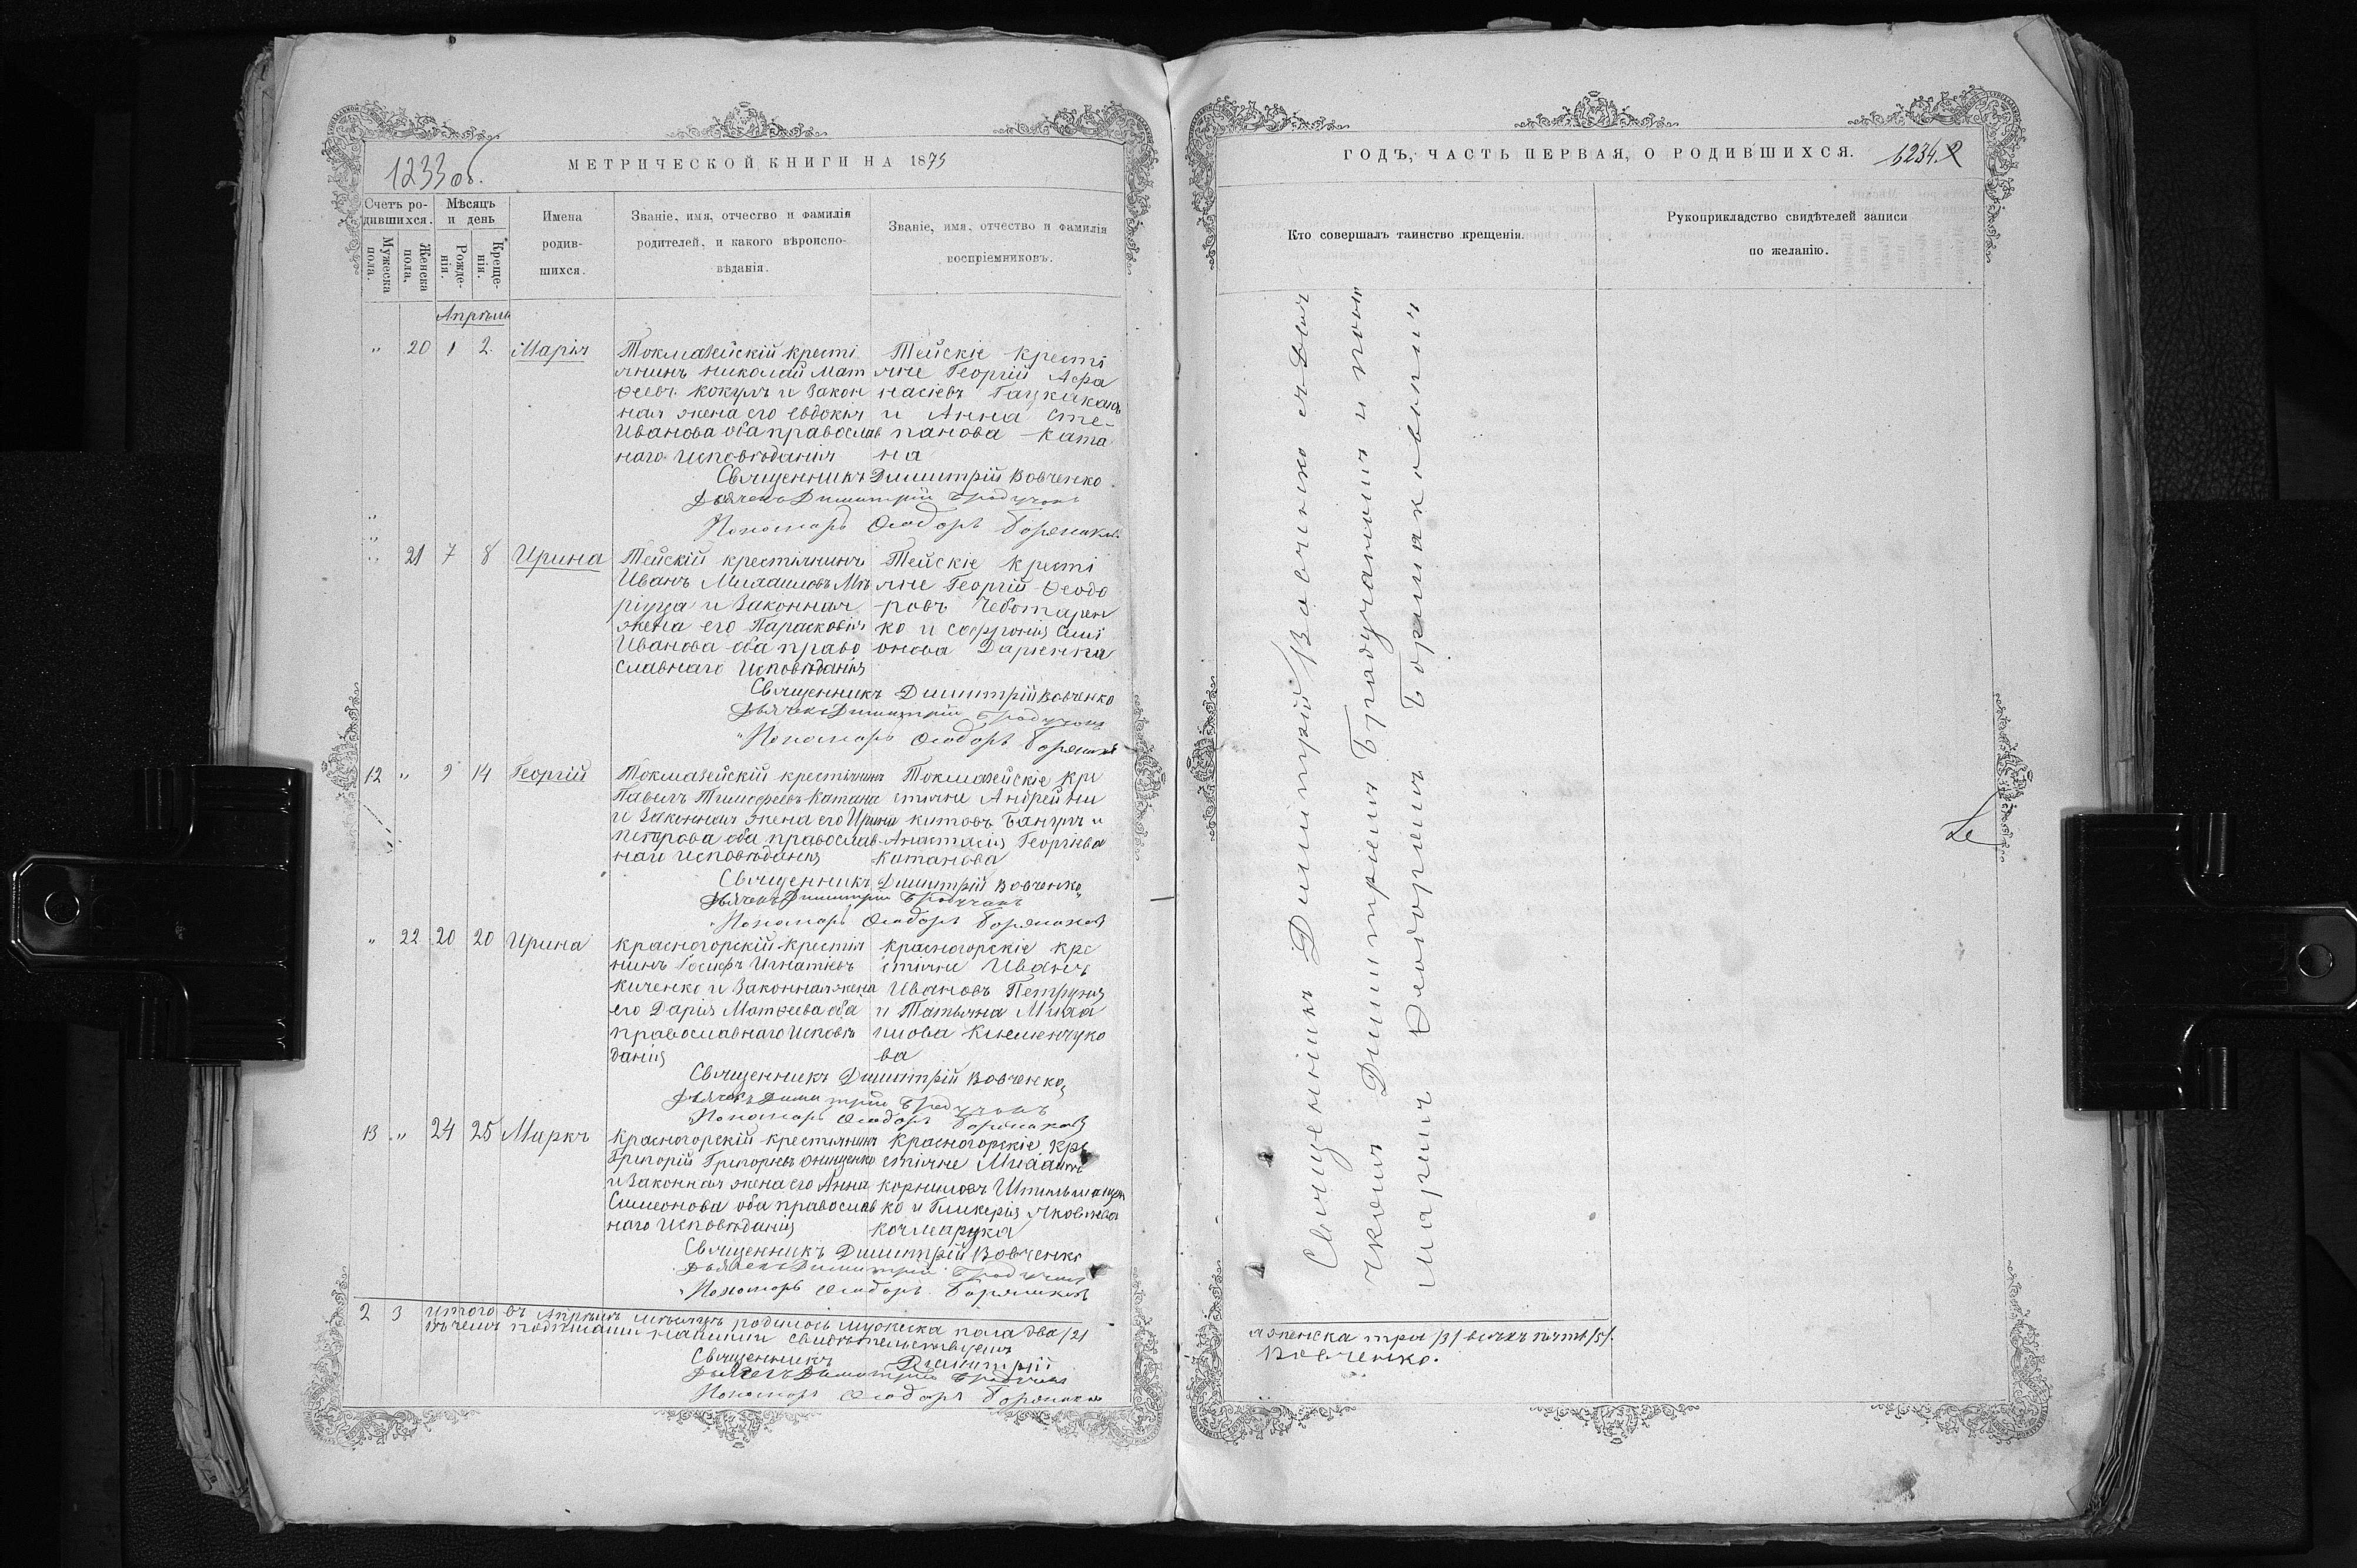 1233 об.
МЕТРИЧЕСКОЙ КНИГИ НА 1875
Счетъ ро-
дившихся.
Мужеска пола.
Женска пола.
Мѣсяцъ
и день
Рожде-
нія.
Креще-
нія.
Имена
родив-
шихся.
Званіе, имя, отчество и фамилія
родителей, и какого вѣроиспо-
вѣданія.
Званіе, имя, отчество и фамилія
воспріемниковъ.
Апрѣль
" 20 1 2 Марія
Токмазейскій кресті
янинъ Николай Мат
ѳеевъ Кокулъ и закон
ная жена его Евдокія
Иванова оба православ
наго исповѣданія
Тейскіе кресті
яне Георгій Афа
насіевъ
и Анна Сте-
панова Ката
на
Священникъ Димитрій Вовченко
Дьячекъ Димитрій
Пономарь Ѳеодоръ
" 21 7 8 Ирина
Тейскій крестіянинъ
Иванъ Михаиловъ
и законная
жена его Парасковія
Иванова оба право
славнаго исповѣданія
Тейскіе кресті
яне Георгій Ѳеодо
ровъ Чеботарен
ко и Софронія Симі
онова Дариенка
Священникъ Димитрій Вовченко
Дьячекъ Димитрій
Пономарь Ѳеодоръ
12 " 9 14 Георгій
Токмазейскій крестіянинъ
Павелъ Тимофеевъ Катана
и законная жена его Ирина
Петрова оба православ
наго исповѣданія
Токмазейскіе кре
стіяне Андрей Ни
китовъ Бануръ и
Анастасія Георгіева
Катанова
Священникъ Димитрій Вовченко
Дьячекъ Димитрій
Пономарь Ѳеодоръ
" 22 20 20 Ирина
Красногорскій крестія
нинъ Іосифъ Игнатіевъ
Киченко и законная жена
его Дарія Матѳеева оба
православнаго исповѣ
данія
Красногорскіе кре
стіяне Иванъ
Ивановъ Петруня
и Татьяна Миха
илова Клеменчуко
ва
Священникъ Димитрій Вовченко
Дьячекъ Димитрій
Пономарь Ѳеодоръ
13 " 24 25 Маркъ
Красногорскій крестіянинъ
Григорій Григорьевъ Онищенко
и законная жена его Анна
Симеонова оба православ
наго исповѣданія
Красногорскіе кре
стіяне Михаилъ
Корниловъ
ко и Гликерія Яковлева
Кочмарука
Священникъ Димитрій Вовченко
Дьячекъ Димитрій
Пономарь Ѳеодоръ
2 3 Итого въ Апрѣлѣ мѣсяцѣ родилось мужеска пола два /2/
въ чемъ подписами нашими свидѣтельствуемъ
Священникъ Димитрій
Дьячекъ Димитрій
Пономарь Ѳеодоръ
ГОДЪ, ЧАСТЬ ПЕРВАЯ, О РОДИВШИХСЯ.
1234.
Кто совершалъ таинство крещенія.
Рукоприкладство свидѣтелей записи
по желанію.
Священникъ Димитрій Вовченко съ Дья
чкомъ Димитріемъ и поно
маремъ Ѳеодоромъ
а женска три /3/ всѣхъ пять /5/.
Вовченко.